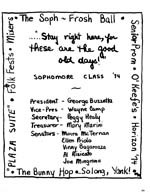 The Soph - Frosh Ball
"Stay right here, for
these are the good
old days!"
SOPHOMORE CLASS '74
President - George Bussetta
Vice-Pres - Wayne Camp
Secretary - Peggy Healy
Treasurer - Mary Marin
Senators - Moira McTernan
Ellen Prialo
Vinny Baporazzo
Al Raiola
Joe Mingione
The Bunny Hop • So long, Yank!
PLAZA SUITE • Folk Fests • Mixers
Senior Prom • O'Keefe's • Horizon '74